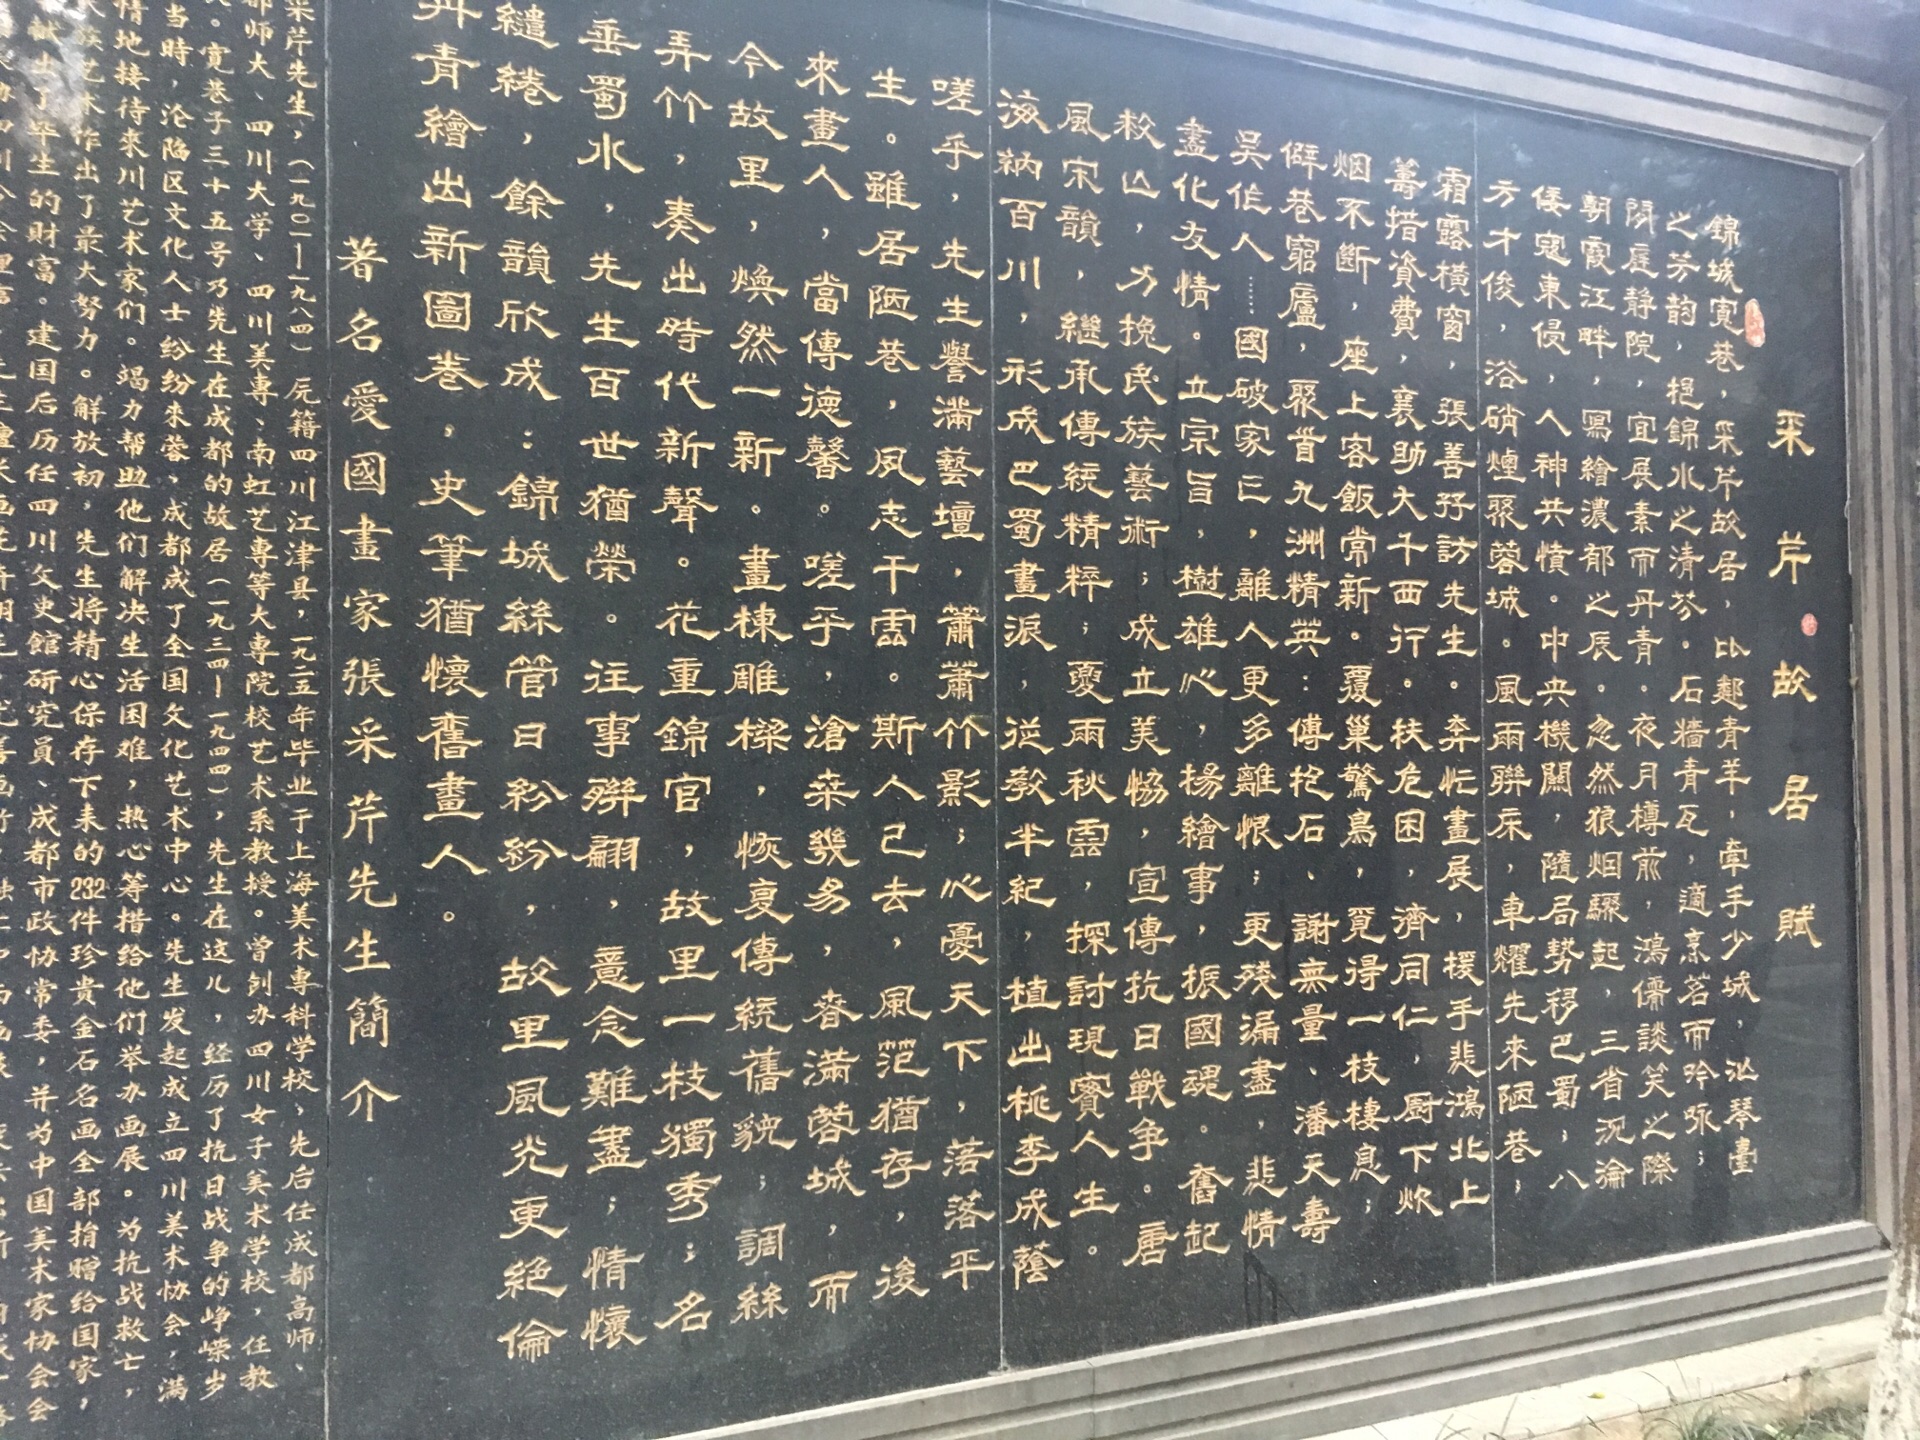 采芹故居賦
錦城寬巷，采芹故居，比鄰青羊，牽手少城，沁琴臺
之芳韵，挹錦水之清芬。石牆青瓦，適烹茗而吟咏；
閑庭静院，宜展素而丹青。夜月樽前，鴻儒談笑之際
朝霞江畔，寫繪濃郁之辰。忽然狼烟驟起，三省沉淪
倭寇東侵，人神共憤。中央機關，隨局勢移巴蜀；八
方才俊，浴硝煙聚蓉城。風雨聯床，車耀先來陋巷；
霜露橫窗，張善孖訪先生。奔忙畫展，援手悲鴻北上
籌措資費，襄助大千西行。扶危困，濟同仁，厨下炊
烟不斷，座上客飯常新。覆巢驚鳥，覓得一枝棲息；
僻巷窮廬，聚首九洲精英：傅抱石、謝無量、潘天壽
吳作人……國破家亡，離人更多離恨；更殘漏盡，悲情
盡化友情。立宗旨，樹雄心，揚繪事，振國魂。奮起
救亡，力挽民族藝術；成立美協，宣傳抗日戰争。唐
風宋韻，繼承傳統精粹；夔雨秋雲，探討現實人生。
海納百川，形成巴蜀畫派，從教半紀，植出桃李成蔭
嗟乎，先生譽滿藝壇，蕭蕭竹影；心憂天下，落落平
生。雖居陋巷，夙志干雲。斯人已去，風范猶存，後
來畫人，當傳德馨。嗟乎，滄桑幾易，春滿蓉城，而
今故里，煥然一新。畫棟雕樑，恢复傳統舊貌；調絲
弄竹，奏出時代新聲。花重錦官，故里一枝獨秀；名
垂蜀水，先生百世猶榮。往事聯翩，意念難盡；情懷
繾綣，餘韻欣成：錦城絲管日紛紛，故里風光更絕倫
丹青繪出新圖卷，史筆猶懷舊畫人。
著名愛國畫家張采芹先生簡介
采芹先生，（一九〇一—一九八四）原籍四川江津县，一九二五年毕业于上海美术専科学校，先后任成都高师、
都师大、四川大学、四川美専、南虹艺専等大専院校艺术系教授。曾创办四川女子美术学校，任教
。宽巷子三十五号乃先生在成都的故居（一九三四—一九四四），先生在这儿，经历了抗日战争的峥嵘岁
当時，沦陷区文化人士纷纷来蓉，成都成了全国文化艺术中心。先生发起成立四川美术协会，满
情地接待来川艺术家们。竭力帮助他们解决生活困难，热心筹措给他们举办画展。为抗战救亡，
族艺术作出了最大努力。解放初，先生将精心保存下来的232件珍贵金石名画全部捐赠给国家，
献出了毕生的财富。建国后历任四川文史館研究員、成都市政协常委，并为中国美术家协会会